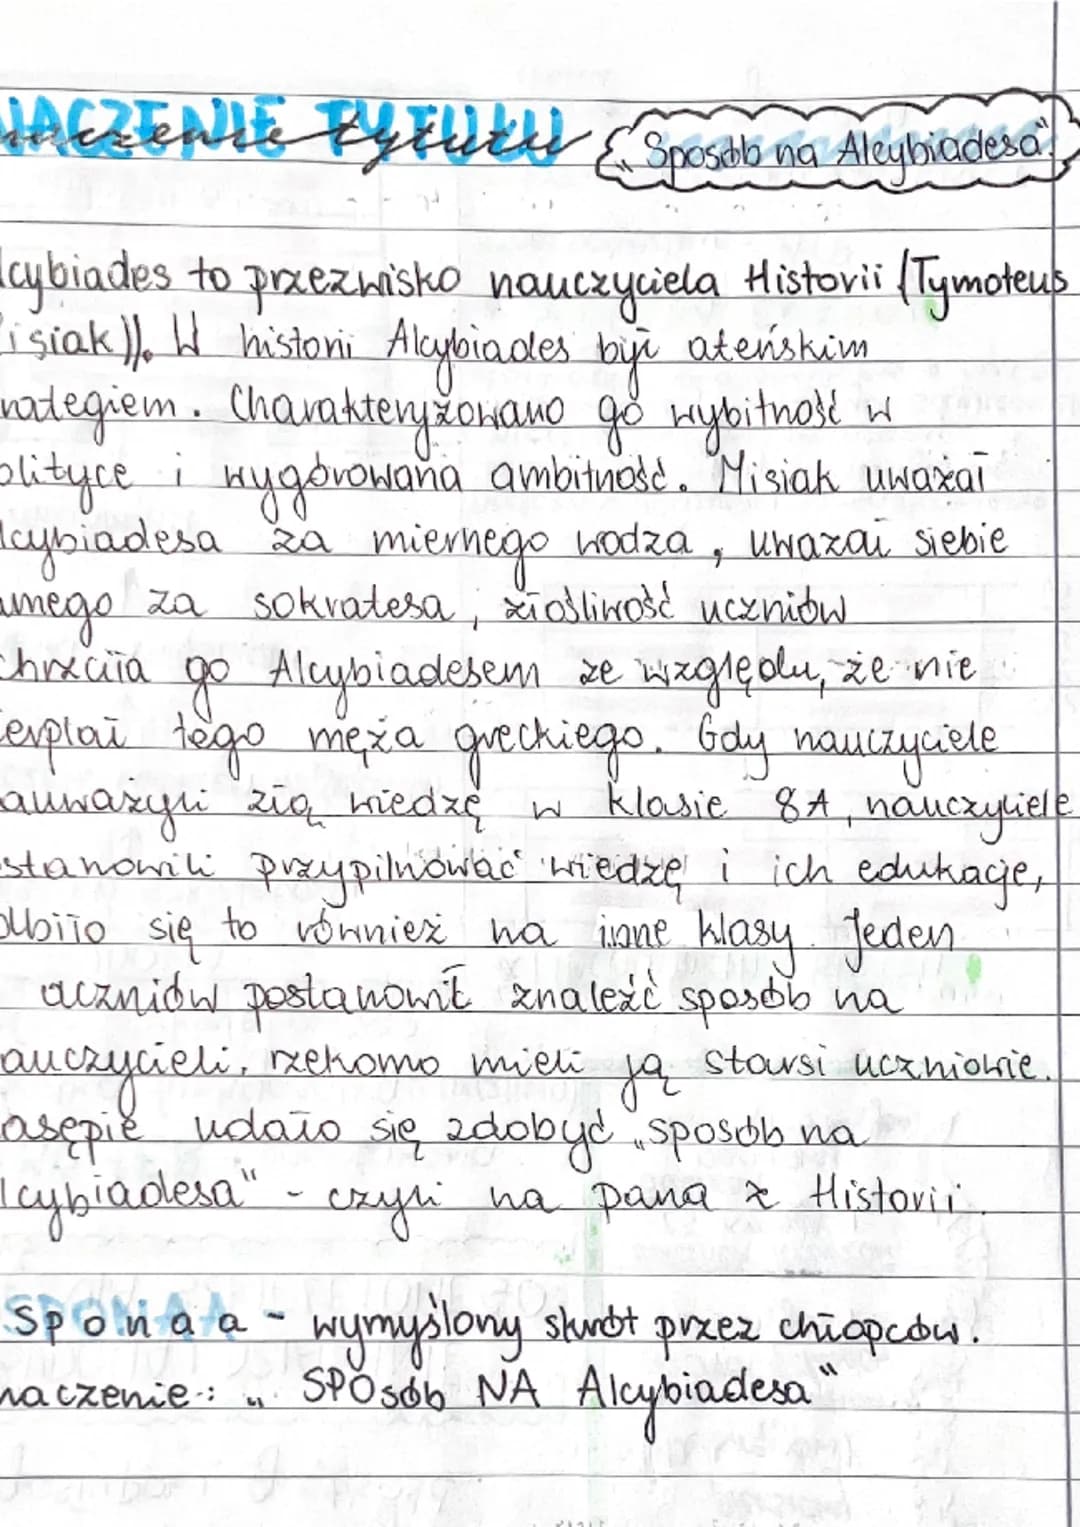 NACZENIE TYTUŁU
„Sposób na Alcybiadesa"
lcybiades to przezwisko nauczyciela Historii (Tymoteus
isiak)). W historii Alcybiades był ateńskim
rategiem. Charakteryzowano go wybitność w
olityce i wygórowana ambitność. Misiak uważał
lcybiadesa za miernego wodza, uważał siebie
amego za sokratesa, złośliwość uczniów
chrzciła go Alcybiadesem ze względu, że nie
ierpiał tego męża greckiego. Gdy nauczyciele
auważyli złą wiedzę w klasie 8A, nauczyciele
stanowili przypilnować wiedzę i ich edukacje,
odbiło się to również na inne klasy. Jeden
uczniów postanowił znaleźć sposób na
auczycieli, rzekomo mieli ją starsi uczniowie.
asępie udało się zdobyć „sposób na
lcybiadesa" - czyli na pana z Historii.
SPONAA - wymyślony skrót przez chłopców.
naczenie: „SPOsób NA Alcybiadesa"